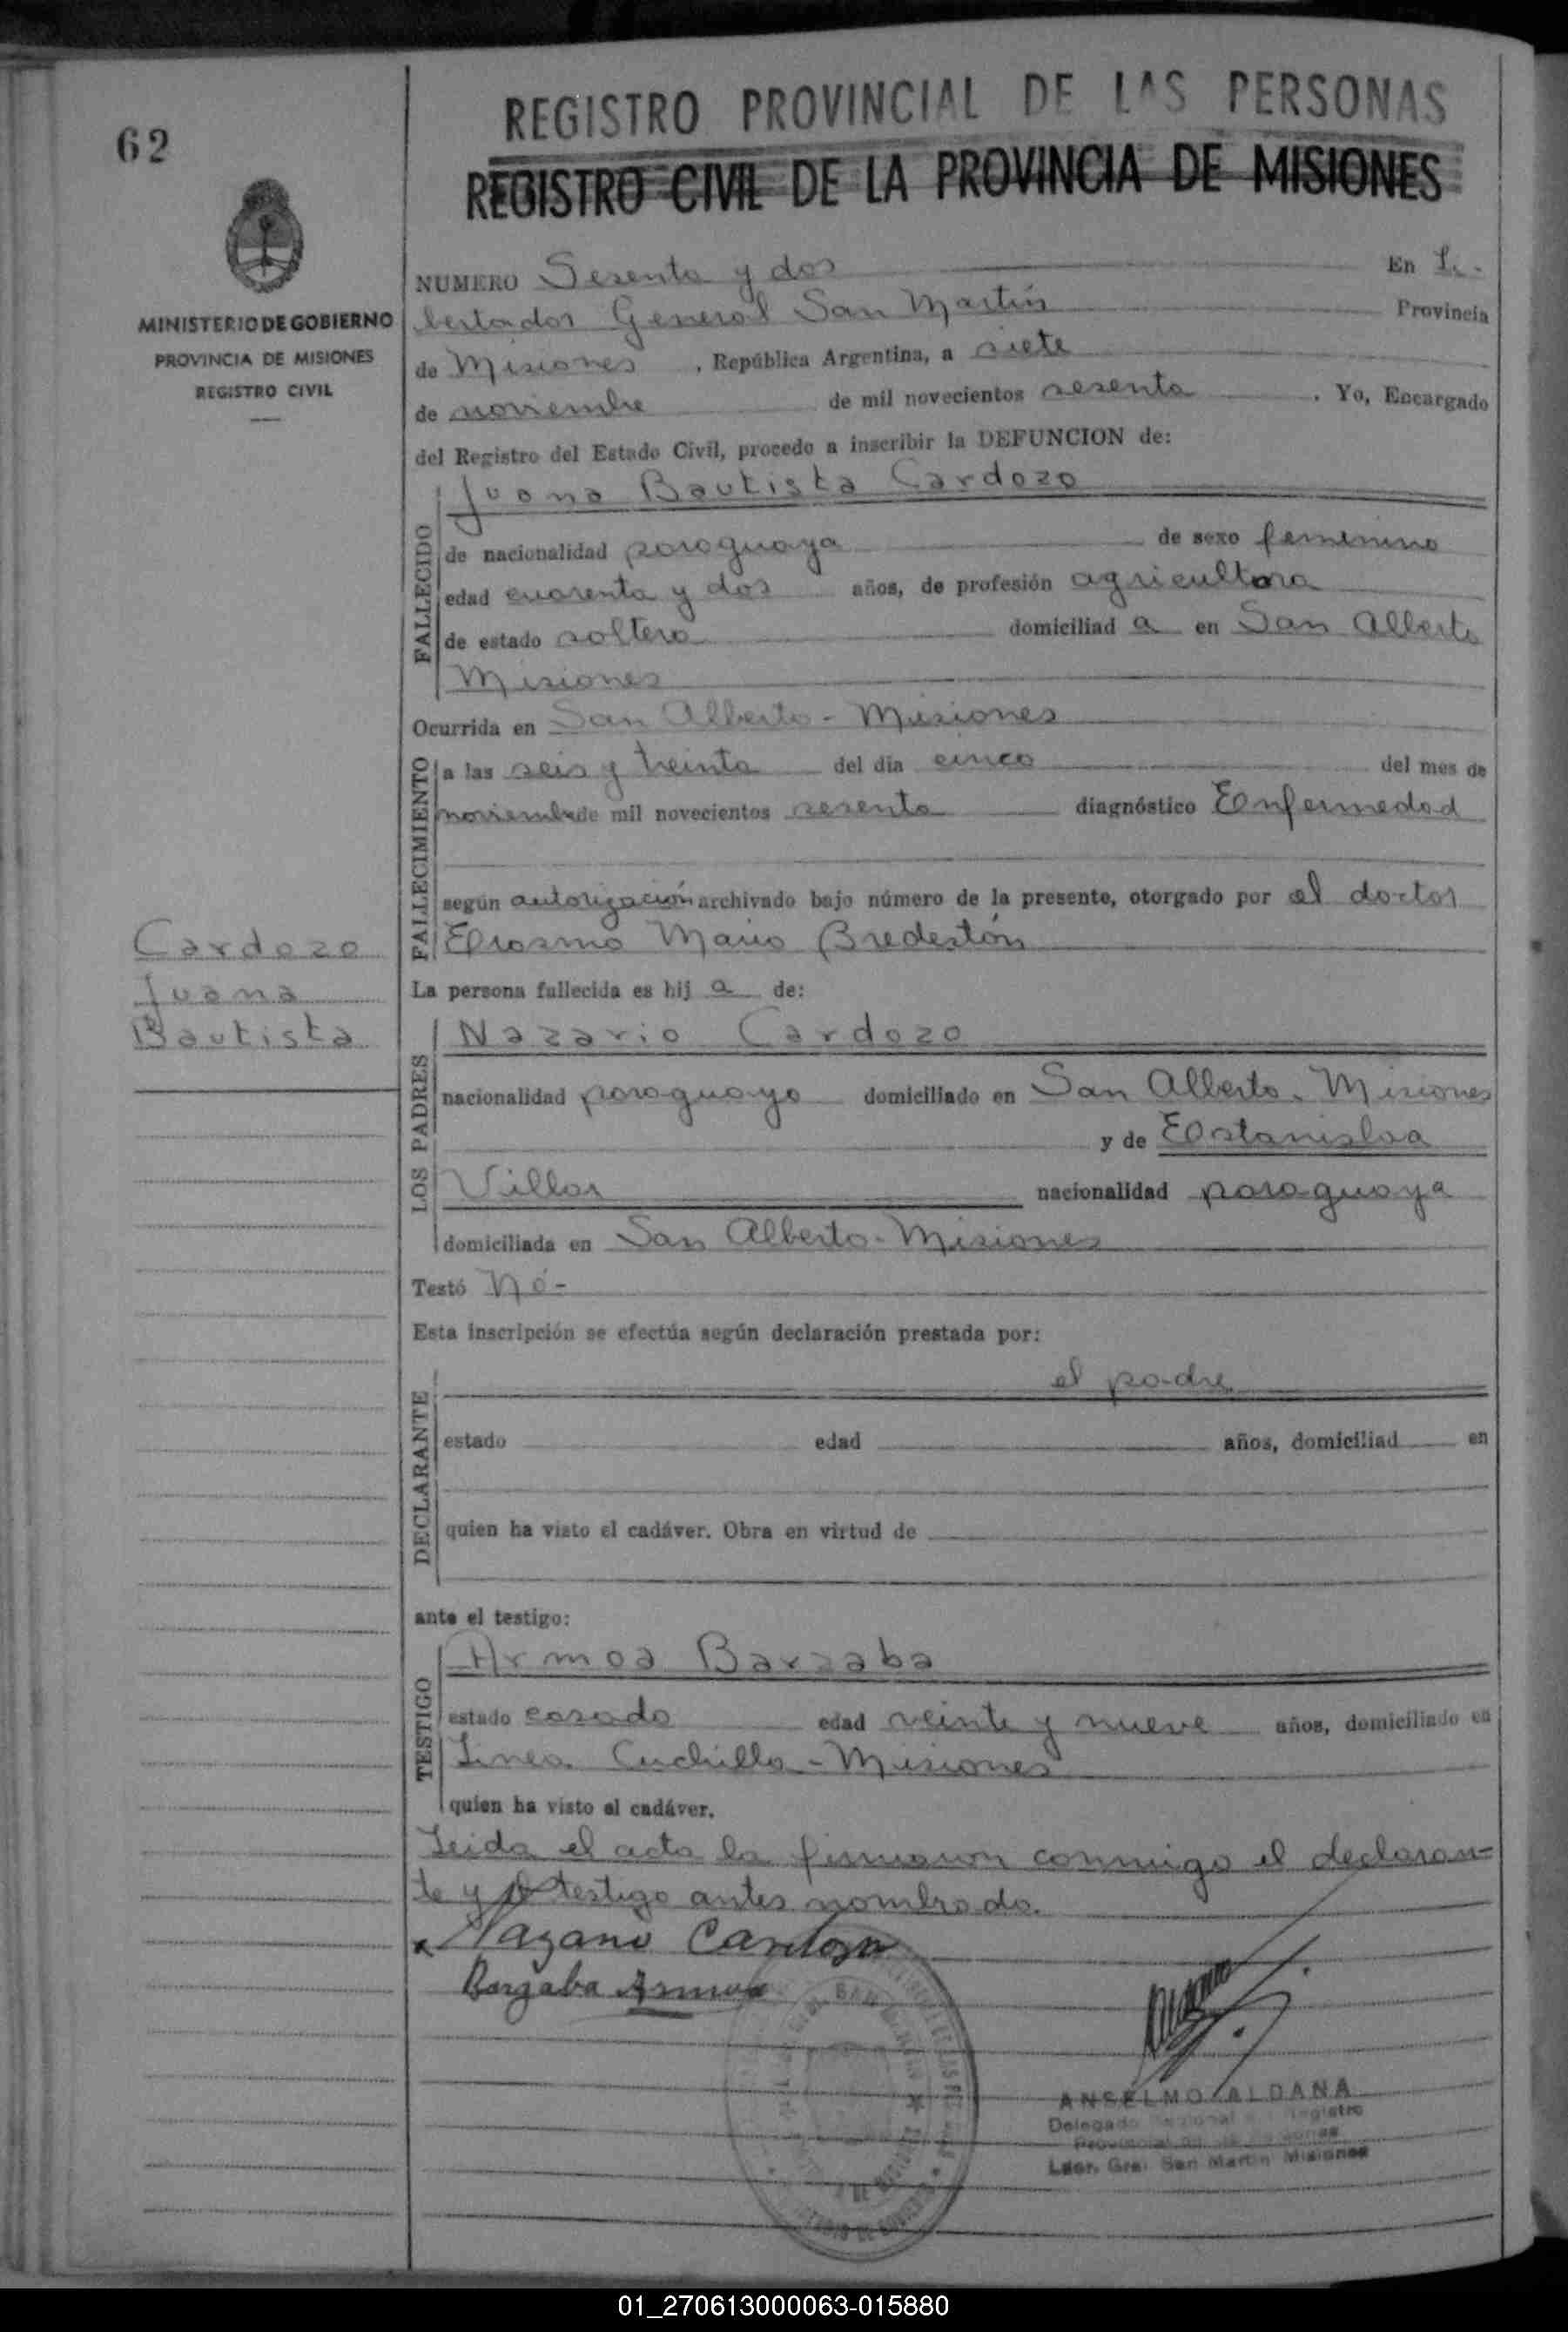 REGISTRO PROVINCIAL DE LAS PERSONAS
62
REGISTRO CIVIL DE LA PROVINCIA DE MISIONES
MINISTERIO DE GOBIERNO
PROVINCIA DE MISIONES
REGISTRO CIVIL
NUMERO Sesenta y dos En Li-
bertador General San Martín Provincia
de Misiones, República Argentina, a siete
de noviembre de mil novecientos sesenta. Yo, Encargado
del Registro del Estado Civil, procedo a inscribir la DEFUNCION de:
Juana Bautista Cardozo
FALLECIDO
de nacionalidad paraguaya de sexo femenino
edad cuarenta y dos años, de profesión agricultora
de estado soltera domiciliad a en San Alberto
Misiones
Ocurrida en San Alberto - Misiones
FALLECIMIENTO
a las seis y treinta del día cinco del mes de
noviembre de mil novecientos sesenta diagnóstico Enfermedad
según autorización archivado bajo número de la presente, otorgado por el doctor
Erasmo Mario Bredestón
Cardozo
Juana
Bautista
La persona fallecida es hij a de:
LOS PADRES
Nazario Cardozo
nacionalidad paraguayo domiciliado en San Alberto - Misiones
y de Estanislaa
Villar nacionalidad paraguaya
domiciliada en San Alberto - Misiones
Testó No-
Esta inscripción se efectúa según declaración prestada por:
DECLARANTE
el padre
estado edad años, domiciliad en
quien ha visto el cadáver. Obra en virtud de
ante el testigo:
TESTIGO
Armoa Barzaba
estado casado edad veinte y nueve años, domiciliado en
Linea Cuchilla - Misiones
quien ha visto el cadáver.
Leida el acta la firmaron conmigo el declaran-
te y el testigo antes nombrado.
Nazario Cardozo
Barzaba Armoa
ANSELMO ALDANA
Delegado Registro
Provincial de las
Ldor. Gral San Martin Misiones
01_270613000063-015880